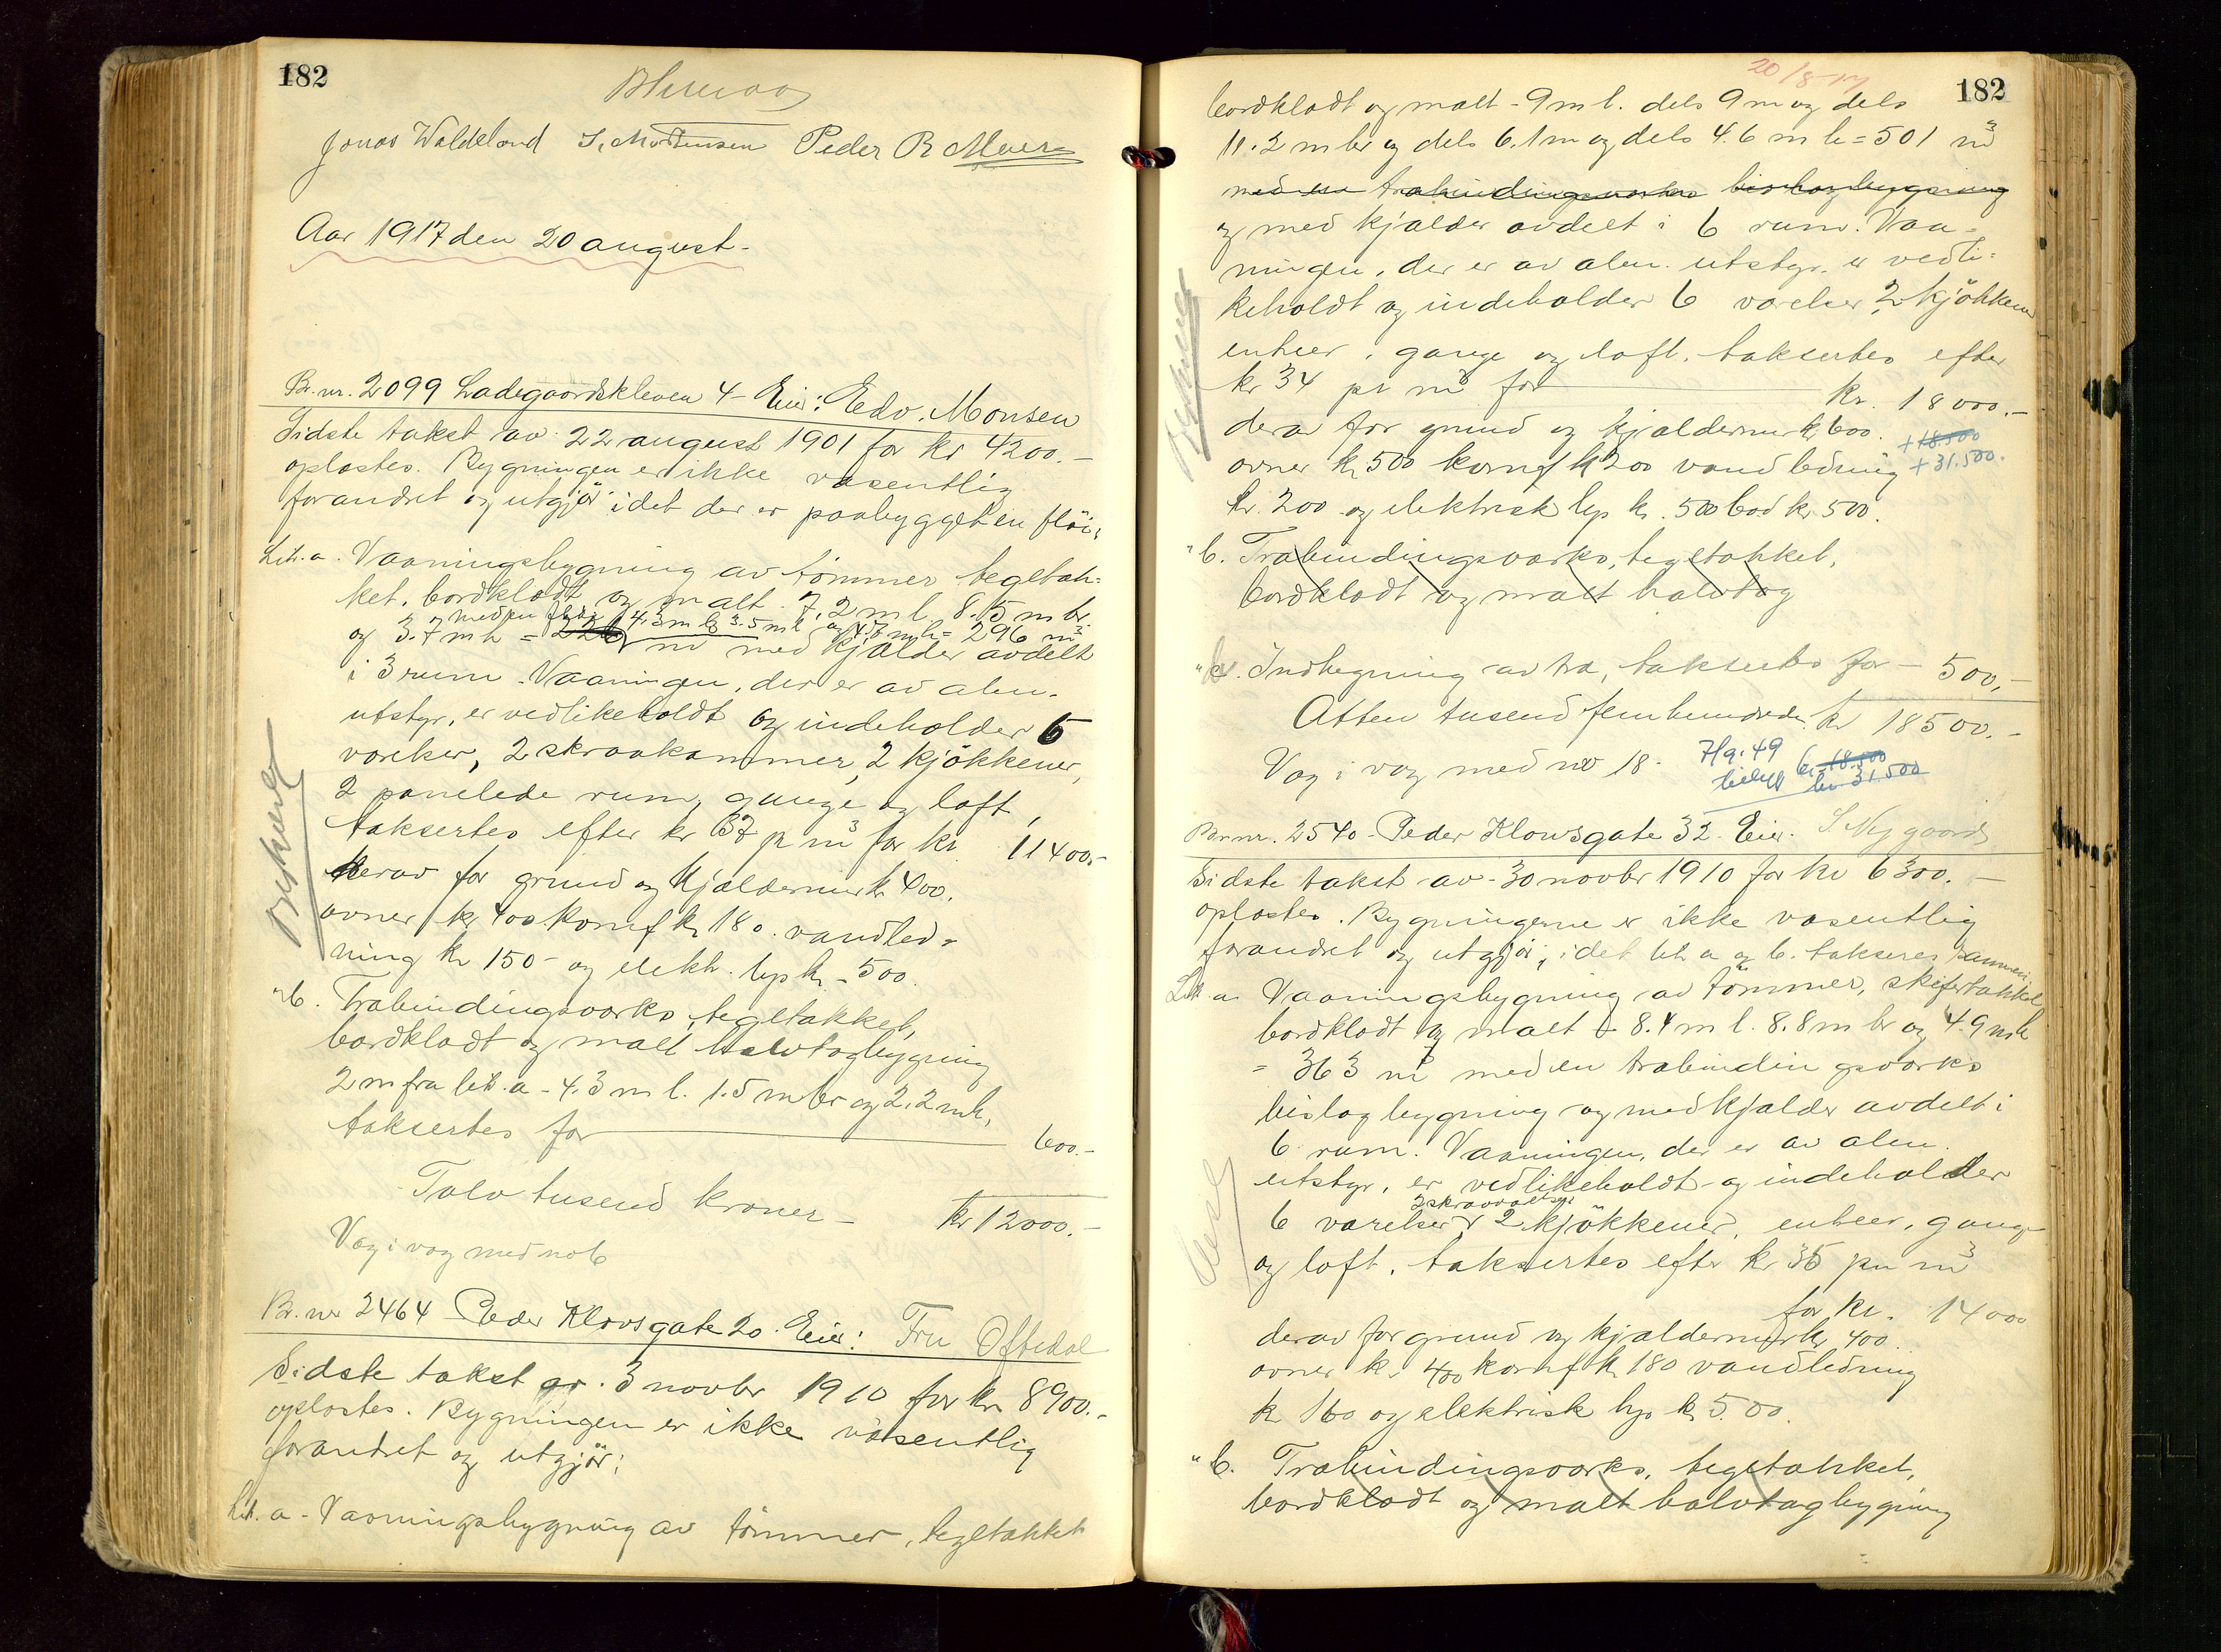 182
Jonas Waldeland S. Mortensen Peder R Meier
Aar 1917 den 20 august.
Br. nr. 2099 Ladegaardskleven 4 Eier: Edv. Monsen
Sidste takst av 22 august 1901 for kr 4200.-
oplæstes. Bygningen er ikke væsentlig
forandret og utgjør idet der er paabygget en fløi:
Lit. a. Vaaningsbygning av tømmer tegltæk=
ket, bordklædt og malt 7.2 m l. 8.15 m br.
med en fløi 4.3 m l. 3.5 m og 4.7 m h = 296 m3
og 3.7 m h = 226 m3 med kjælder avdelt
i 3 rum. Vaaningen, der er av alm.
utstyr, er vedlikeholdt og indeholder 6
værelser, 2 skraakammer, 2 kjøkkener,
2 panelede rum, gange og loft,
taksertes efter kr 37 p m3 for kr. 11400.-
derav for grund og kjældermur kr 400.
ovner kr 400 komf kr 180. vandled=
ning kr 150 - og elektr. lys kr. 500.
Beskrevet
" b. Træbindingsværks, tegltækket,
bordklædt og malt halvtagbygning
2 m fra lit. a - 4.3 m l. 1.5 m br og 2.2 m h,
taksertes for 600.-
Tolv tusend kroner - kr 12000.-
Væg i væg med no 6
Br. nr 2464 Peder Klowsgate 20. Eier: Fru Oftedal
Sidste takst av 3 novbr 1910 for kr 8900.-
oplæstes. Bygningen er ikke væsentlig
forandret og utgjør:
Lit. a - Vaaningsbygning av tømmer, tegltækket
20/8-17
182
bordklædt og malt - 9 m l. dels 9 m og dels
11.2 m br og dels 6.1 m og dels 4.6 m h = 501 m3
med en træbindingsværks bislagbygning
og med kjælder avdelt i 6 rum. Vaa=
ningen, der er av alm. utstyr, er vedli=
keholdt og indeholder 6 værelser, 2 kjøkkener
entreer, gange og loft, taksertes efter
kr 34 pr m3 for kr. 18000.-
derav for grund og kjældermur kr 600.
+18.500
ovner kr 500 komf kr 200 vandledning
+31.500.
kr. 200 og elektrisk lys kr. 500 bad kr 500.
" b. Træbindingsværks, tegltækket,
bordklædt og malt halvtag
" b. Indhegning av træ, taksertes for - 500.-
Atten tusend femhundrede kr 18500.-
Væg i væg med no 18.
7/9.49
kr 18.500
kr 31.500
Br. nr. 2540 - Peder Klowsgate 32. Eier. S. Nygaard
Sidste takst av 30 novbr 1910 for kr 6300.-
oplæstes. Bygningerne er ikke væsentlig
forandret og utgjør, idet lit a og b. takseres sammen:
Lit a Vaaningsbygning av tømmer, skifertækket
bordklædt og malt - 8.4 m l. 8.8 m br og 4.9 m h
= 363 m3 med en træbindingsværks
bislagbygning og med kjælder avdelt i
6 rum. Vaaningen, der er av alm.
utstyr, er vedlikeholdt og indeholder
2 skraaværelser
6 værelser 2 kjøkkener, entreer, gange
og loft, taksertes efter kr 35 pr m3
for kr. 14000
derav for grund og kjældermur kr 400.
ovner kr 400 komf kr 180 vandledning
kr 160 og elektrisk lys kr 500.
" b. Træbindingsværks, tegltækket,
bordklædt og malt halvtagbygning